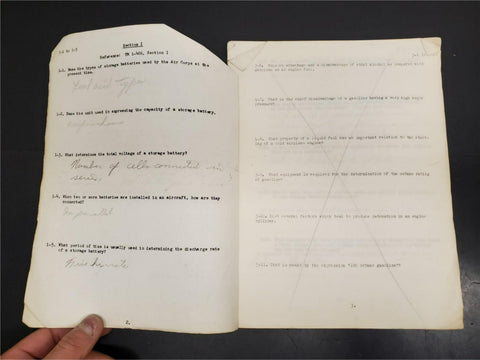 1-1 to 1-5
Section I
Reference: TM 1-406, Section I
1-1. Name the types of storage batteries used by the Air Corps at the
present time.
Lead acid type
1-2. Name the unit used in expressing the capacity of a storage battery.
1-3. What determines the total voltage of a storage battery?
Number of cells connected in
series.
1-4. When two or more batteries are installed in an aircraft, how are they
connected?
In parallel
1-5. What period of time is usually used in determining the discharge rate
of a storage battery?
2.
advantage and a disadvantage of ethyl alcohol as compared with
gasoline as an engine fuel.
What is the chief disadvantage of a gasoline having a very high vapor
pressure?
What property of a liquid fuel has an important relation to the
of a cold airplane engine?
What equipment is required for the determination of the octane rating
of gasoline?
List several factors which tend to produce detonation in an engine
cylinder.
What is meant by the expression "100 octane gasoline"?
3.